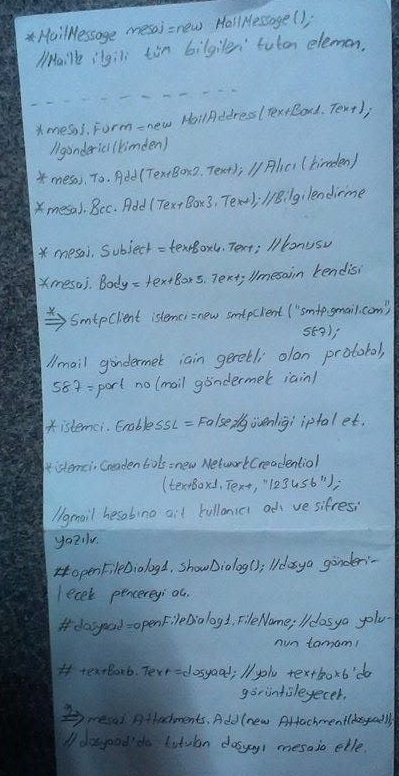 *MailMessage mesaj=new MailMessage();
//Maille ilgili tüm bilgileri tutan eleman.
*mesaj.Form=new MailAddress(TextBox1.Text);
//gönderici(kimden)
*mesaj.To.Add(TextBox2.Text); //Alıcı(kimden)
*mesaj.Bcc.Add(TextBox3.Text);//Bilgilendirme
*mesaj.Subject=textBox4.Text; //konusu
*mesaj.Body=textBox5.Text;//mesajın kendisi
*⇒SmtpClient istemci=new smtpClient("smtp.gmail.com",
587);
//mail göndermek için gerekli olan protokol,
587=port no(mail göndermek için)
*istemci.EnableSSL=False//güvenliği iptal et.
*istemci.Creadentials=new NetworkCreadential
(textBox1.Text,"123456");
//gmail hesabına ait kullanıcı adı ve sifresi
yazılır.
#openFileDialog1.ShowDialog(); //dosya gönderi-
lecek pencereyi aç.
#dosyaad=openFileDialog1.FileName;//dosya yolu-
nun tamamı
# textBox6.Text=dosyaad; //yolu textbox6'da
görüntüleyecek.
⇒mesaj.Attachments.Add(new Attachment(dosyaad));
//dosyaad'da tutulan dosyayı mesaja ekle.